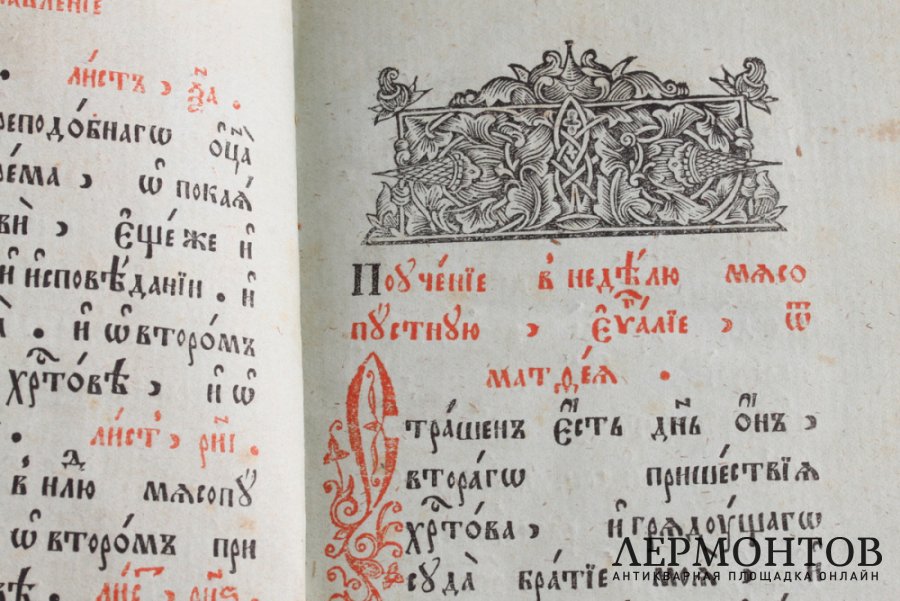 авленіе
. ли́стъ, рз҃а.
реподо́бнагѡ ѻ҆ц҃а̀
ре́ма, ѡ҆ покаѧ́
ви̑, Е҆ще́ же и҆
и҆ и҆сповѣ́данїи. и҆
. И҆ ѡ҆ второ́мъ
хрⷭ҇то́вѣ, и҆ ѡ҆
. ли́стъ, рн҃і.
в̾ нⷣлю мѧсопꙋ́
ѡ҆ второ́мъ при
Поꙋче́нїе в̾ недѣ́лю мѧсо
пꙋ́стнꙋю, Е҆ѵⷢ҇алїе, ѿ
матѳе́ѧ.
Стра́шенъ є҆́сть дн҃ь ѻ҆́нъ,
втора́гѡ прише́ствїѧ
хрⷭ҇то́ва, и҆ грѧдꙋ́щагѡ
сꙋда̀ бра́тїе моѧ̀
ЛЕРМОНТОВ
АНТИКВАРНАЯ ПЛОЩАДКА ОНЛАЙН